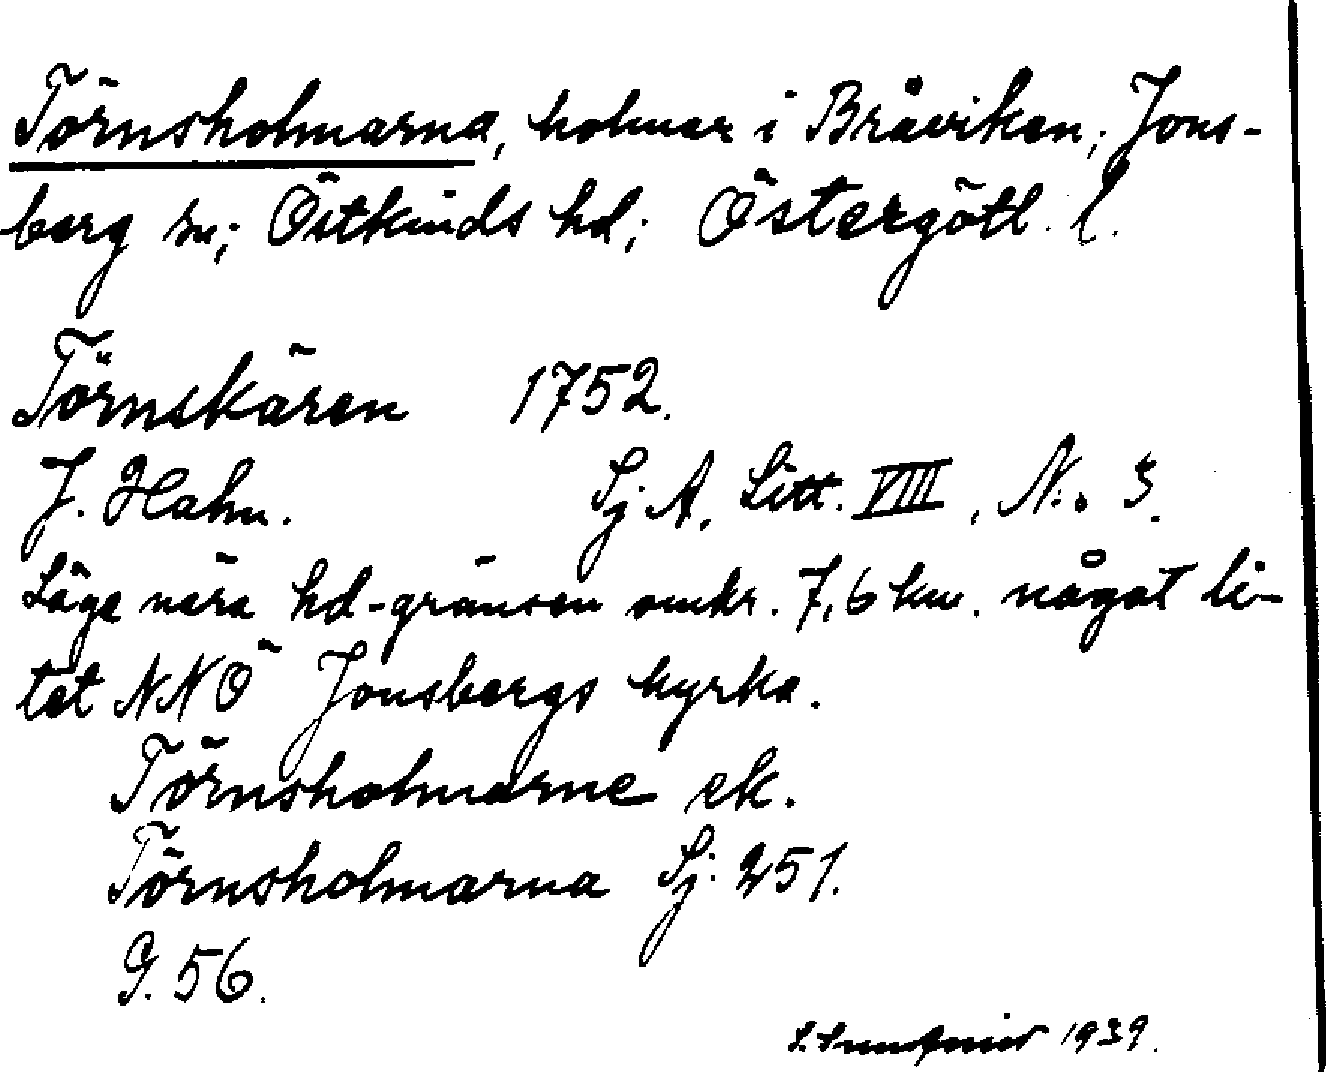 Törnsholmarna, holmar i Bråviken; Jons-
berg sn; Östkinds hd; Östergötl. l.
Törnskären 1752.
J. Hahn. Sj A. Litt. VIII, No 3.
Läge nära hd-gränsen omkr. 7,6 km. något li-
tet NNÖ Jonsbergs kyrka.
Törnsholmarne ek.
Törnsholmarna Sj. 251.
G. 56.
1939.